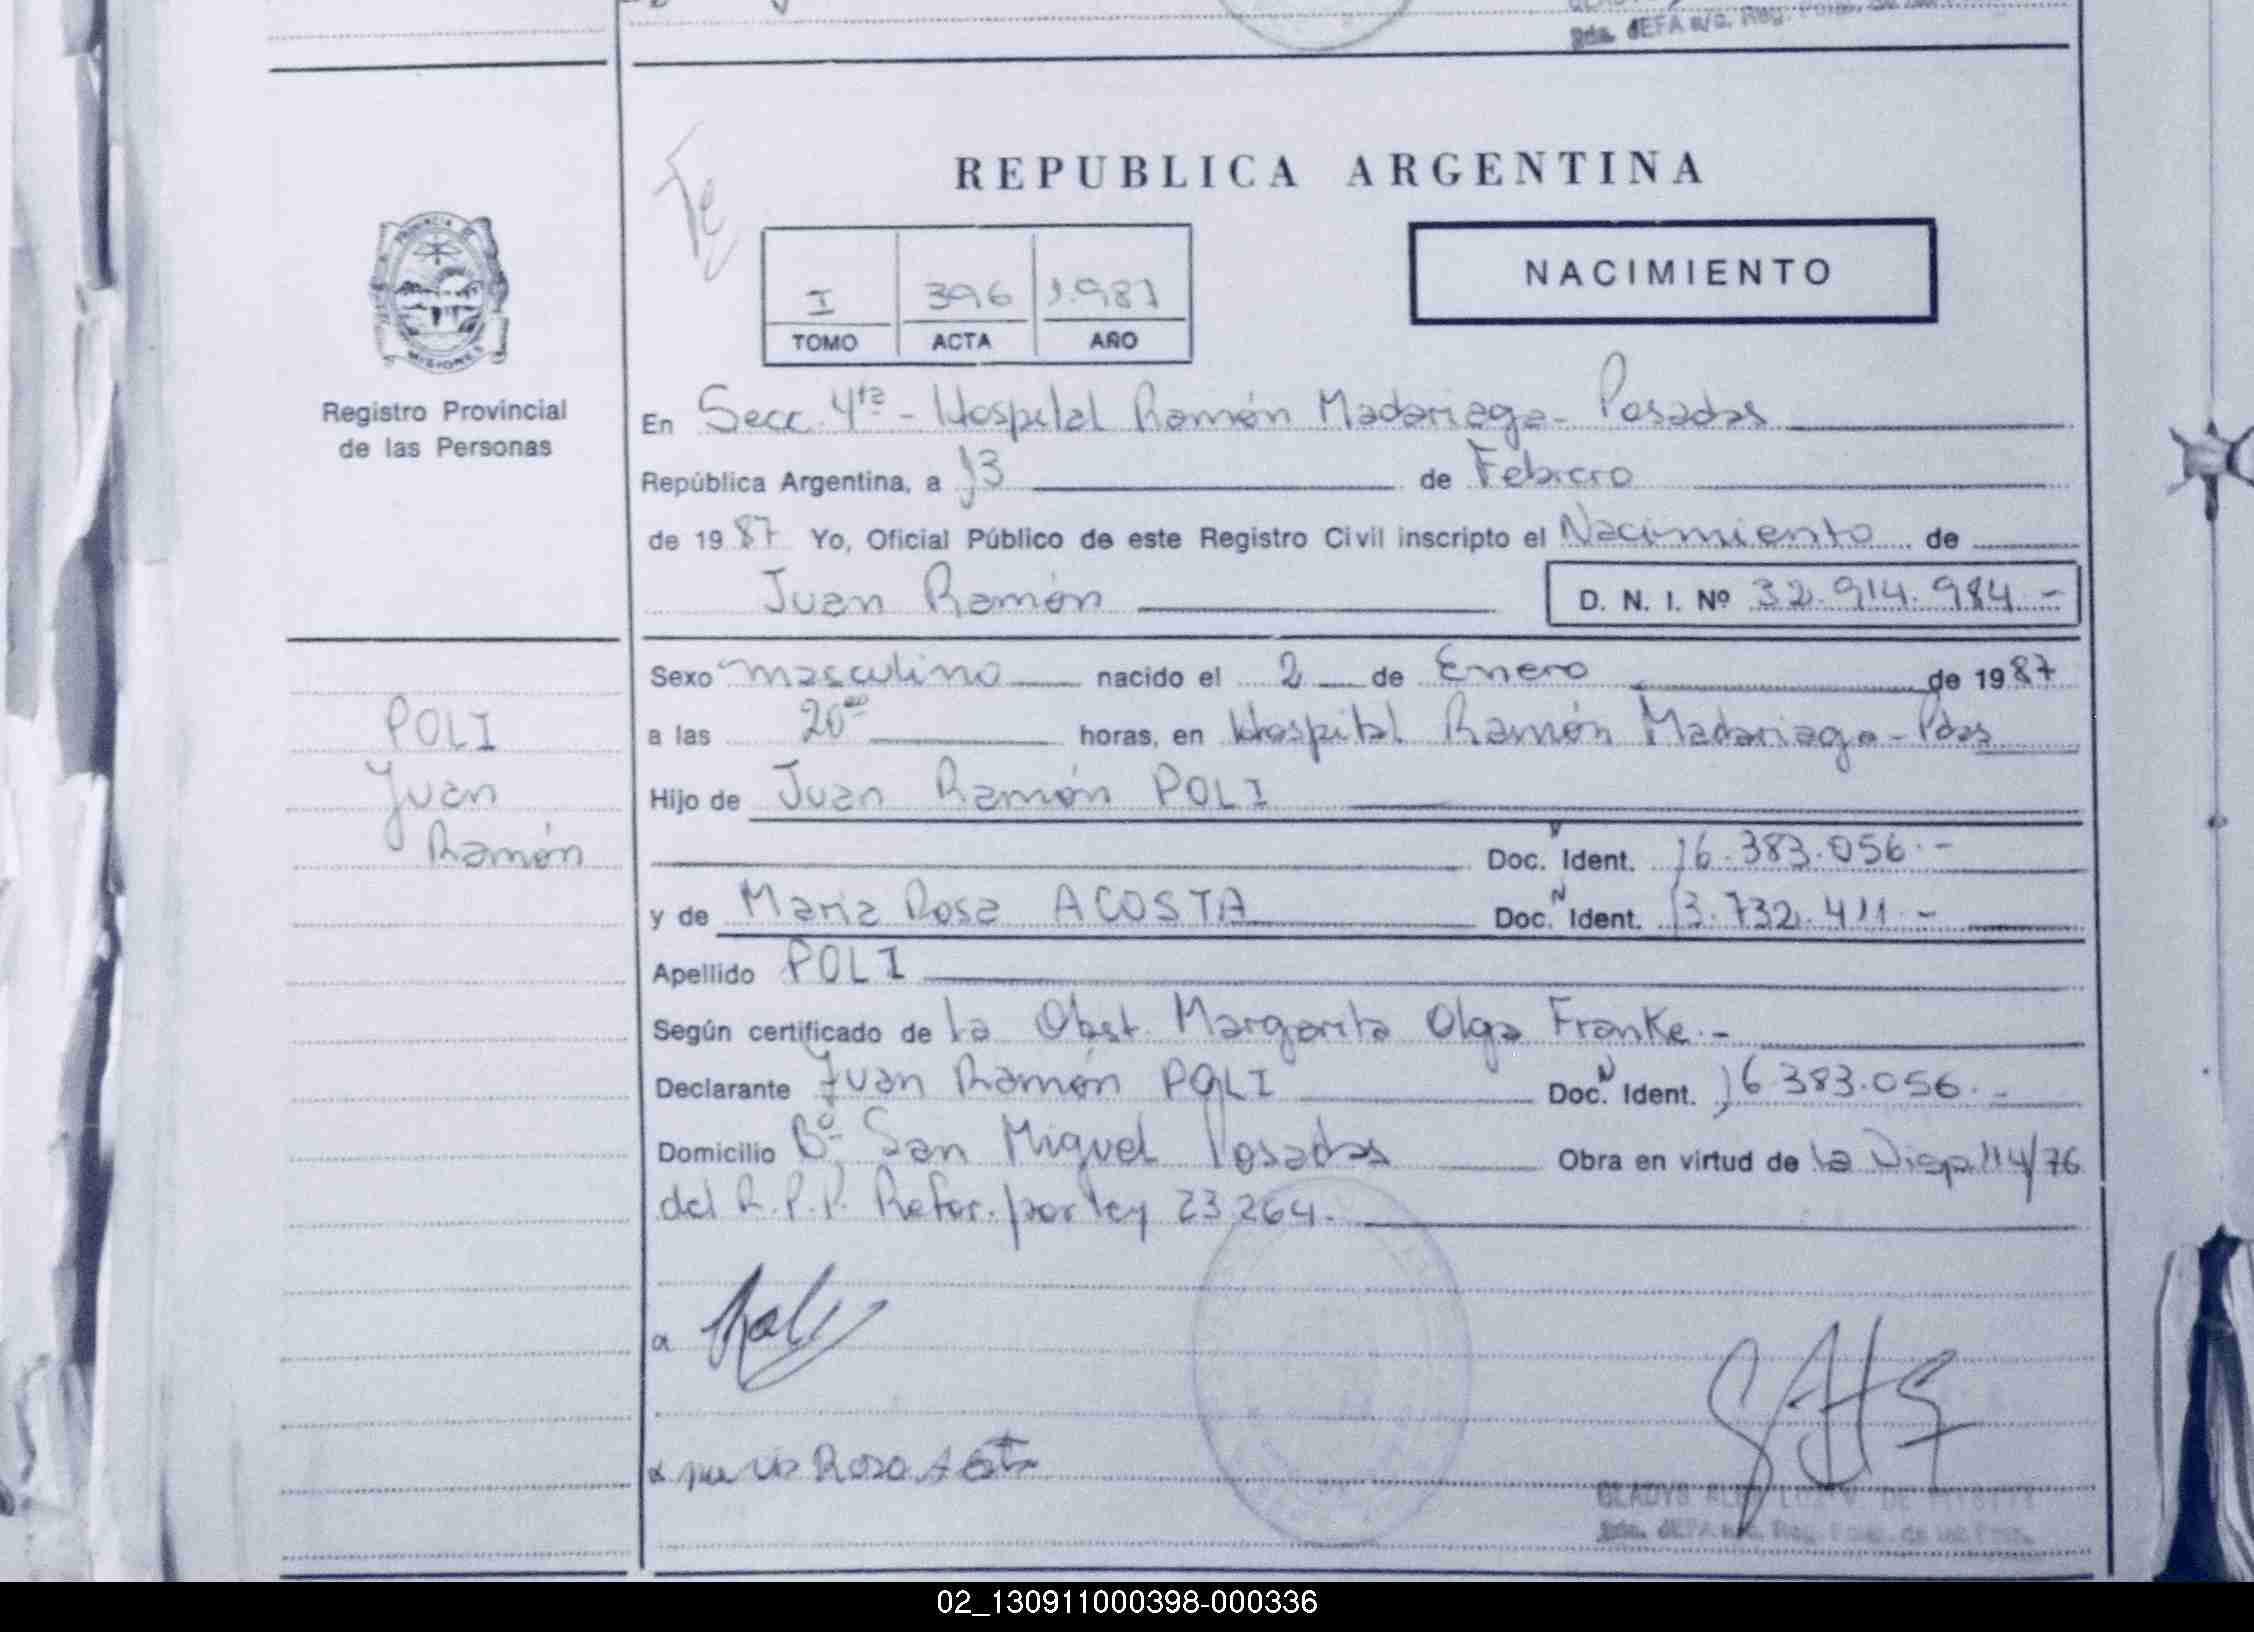 Sda. JEFA a/c. Reg.
REPUBLICA ARGENTINA
PROVINCIA DE
MISIONES
Registro Provincial
de las Personas
NACIMIENTO
I 396 1.987
TOMO ACTA AÑO
En Secc. 4ta - Hospital Ramón Madariaga - Posadas
República Argentina, a 13 de Febrero
de 1987 Yo, Oficial Público de este Registro Civil inscripto el Nacimiento de
Juan Ramón D. N. I. Nº 32.914.984.-
Sexo masculino nacido el 2 de Enero de 1987
a las 20 horas, en Hospital Ramón Madariaga - Pdas
Hijo de Juan Ramón POLI
Doc. Ident. 16.383.056.-
y de Maria Rosa ACOSTA Doc. N Ident. 13.732.411.-
Apellido POLI
Según certificado de la Obst. Margarita Olga Franke.-
Declarante Juan Ramón POLI Doc. N Ident. 16.383.056.-
Domicilio Bº San Miguel Posadas Obra en virtud de la Disp. 114/76
del R.P.P. Refor. por ley 23.264.-
POLI
Juan
Ramón
Poli
Maria Rosa Acosta
GLADYS
Sda. JEFA a/c. Reg. Pcial. de las Pers.
02_130911000398-000336